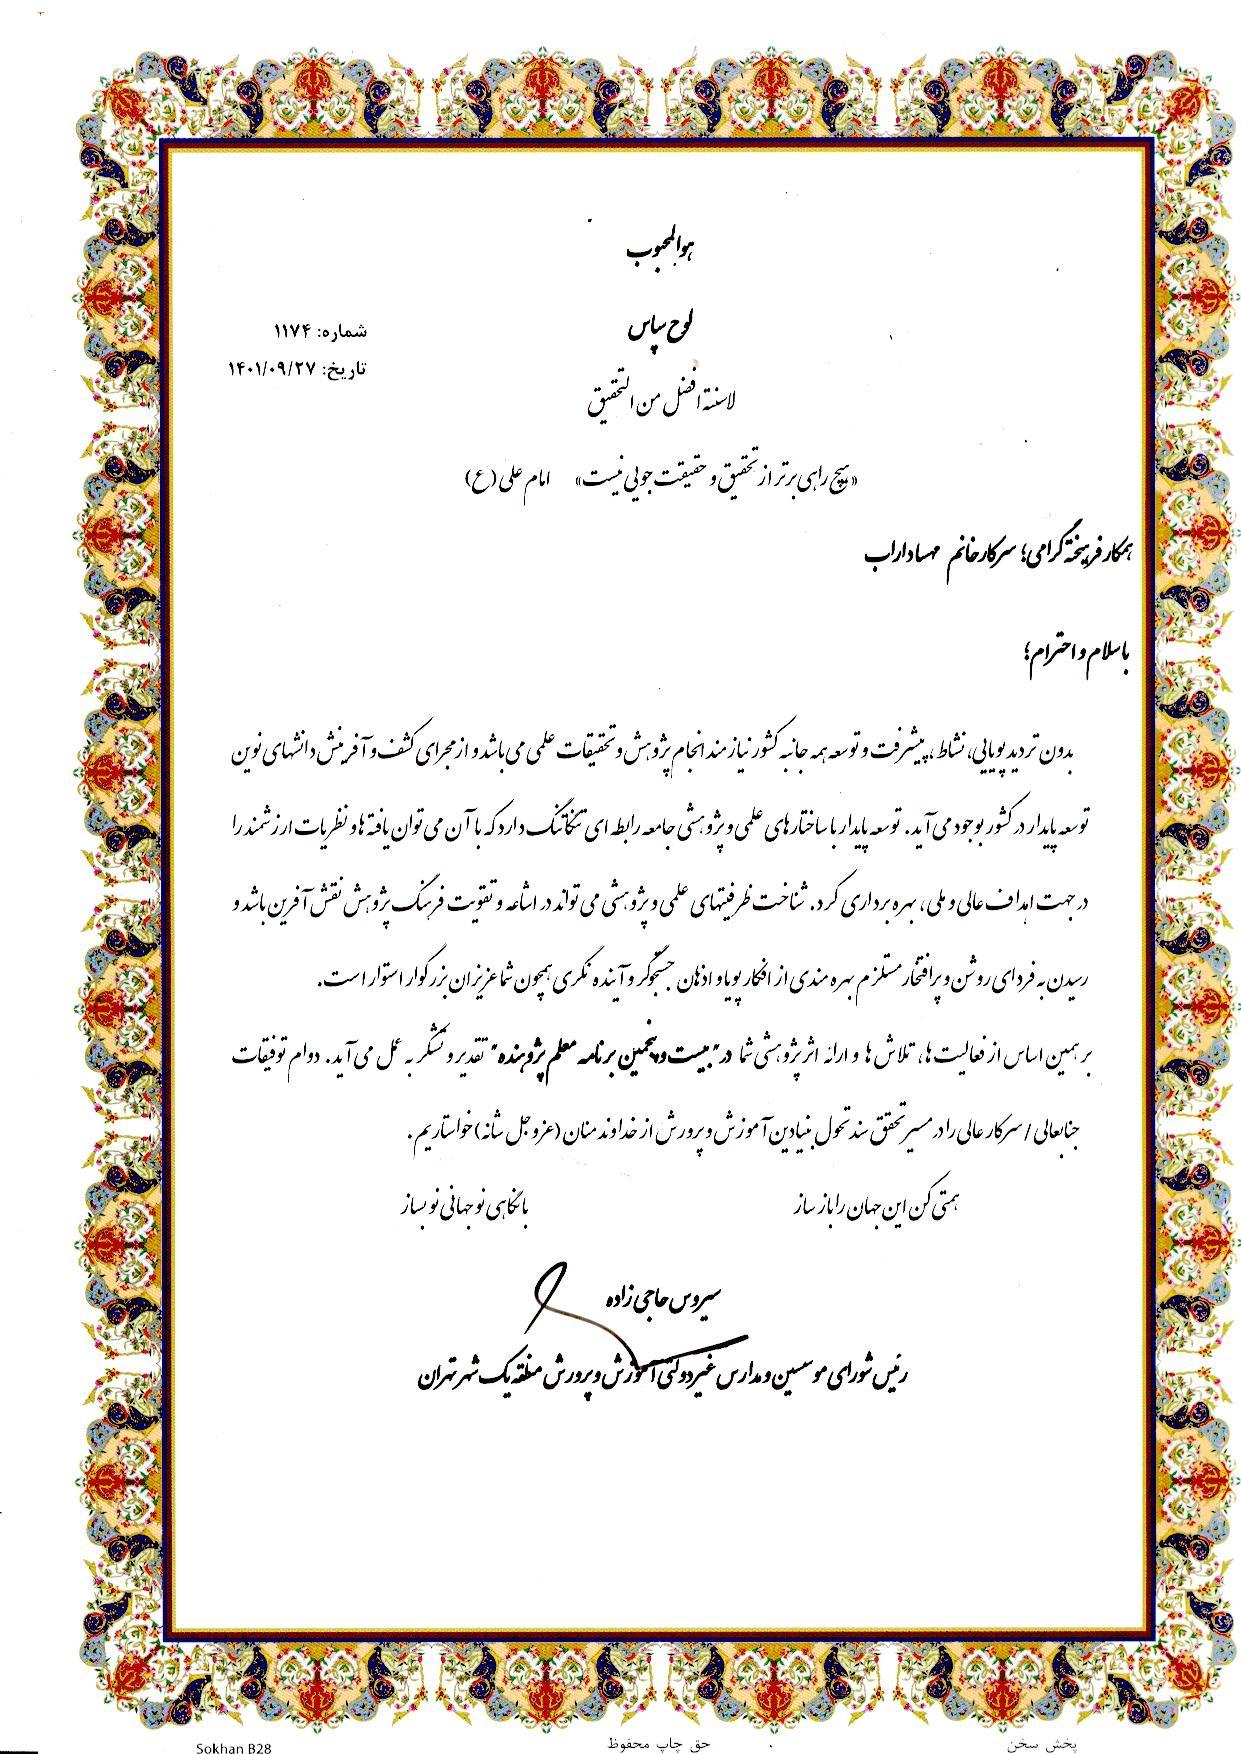 هوالمحبوب
لوح سپاس
شماره: ۱۱۷۴
تاریخ: ۱۴۰۱/۰۹/۲۷
لاسنة افضل من التحقیق
«هیچ راهی برتر از تحقیق و حقیقت جویی نیست» امام علی (ع)
همکار فرهیخته گرامی؛ سرکار خانم مهسا داراب
با سلام و احترام؛
بدون تردید پویایی، نشاط، پیشرفت و توسعه همه جانبه کشور نیازمند انجام پژوهش و تحقیقات علمی می باشد و از مجرای کشف و آفرینش دانشهای نوین
توسعه پایدار در کشور بوجود می آید. توسعه پایدار با ساختارهای علمی و پژوهشی جامعه رابطه ای تنگاتنگ دارد که با آن می توان یافته ها و نظریات ارزشمند را
در جهت اهداف عالی و ملی، بهره برداری کرد. شناخت ظرفیتهای علمی و پژوهشی می تواند در اشاعه و تقویت فرهنگ پژوهش نقش آفرین باشد و
رسیدن به فردای روشن و پرافتخار مستلزم بهره مندی از افکار پویا و اذهان جستجوگر و آینده نگری همچون شما عزیزان بزرگوار استوار است.
بر همین اساس از فعالیت ها، تلاش ها و ارائه اثر پژوهشی شما در "بیست و پنجمین برنامه معلم پژوهنده" تقدیر و تشکر به عمل می آید. دوام توفیقات
جنابعالی / سرکار عالی را در مسیر تحقق سند تحول بنیادین آموزش و پرورش از خداوند منان (عزو جل شانه) خواستاریم.
همتی کن این جهان را باز ساز با نگاهی نو جهانی نو بساز
سیروس حاجی زاده
رئیس شورای موسسین و مدارس غیردولتی آموزش و پرورش منطقه یک شهر تهران
پخش سخن حق چاپ محفوظ Sokhan B28